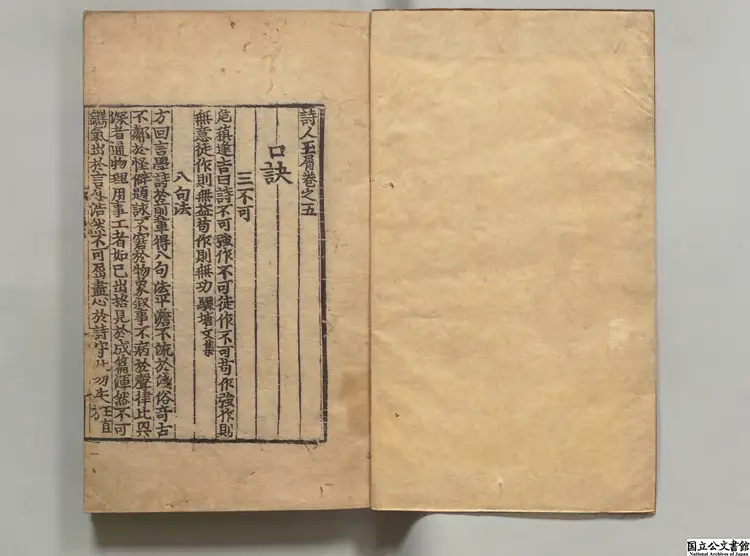 詩人玉屑卷之五
口訣
三不可
危稹逢吉曰詩不可強作不可徒作不可苟作強作則
無意徒作則無益苟作則無功 驪塘文集
八句法
方回言學詩於前輩得八句法平澹不流於淺俗奇古
不鄰於怪僻題詠不窘於物象叙事不病於聲律比興
深者通物理用事工者如已出格見於成篇渾然不可
鐫氣出於言外浩然不可屈盡心於詩守此勿失 王直方
国立公文書館
National Archives of Japan